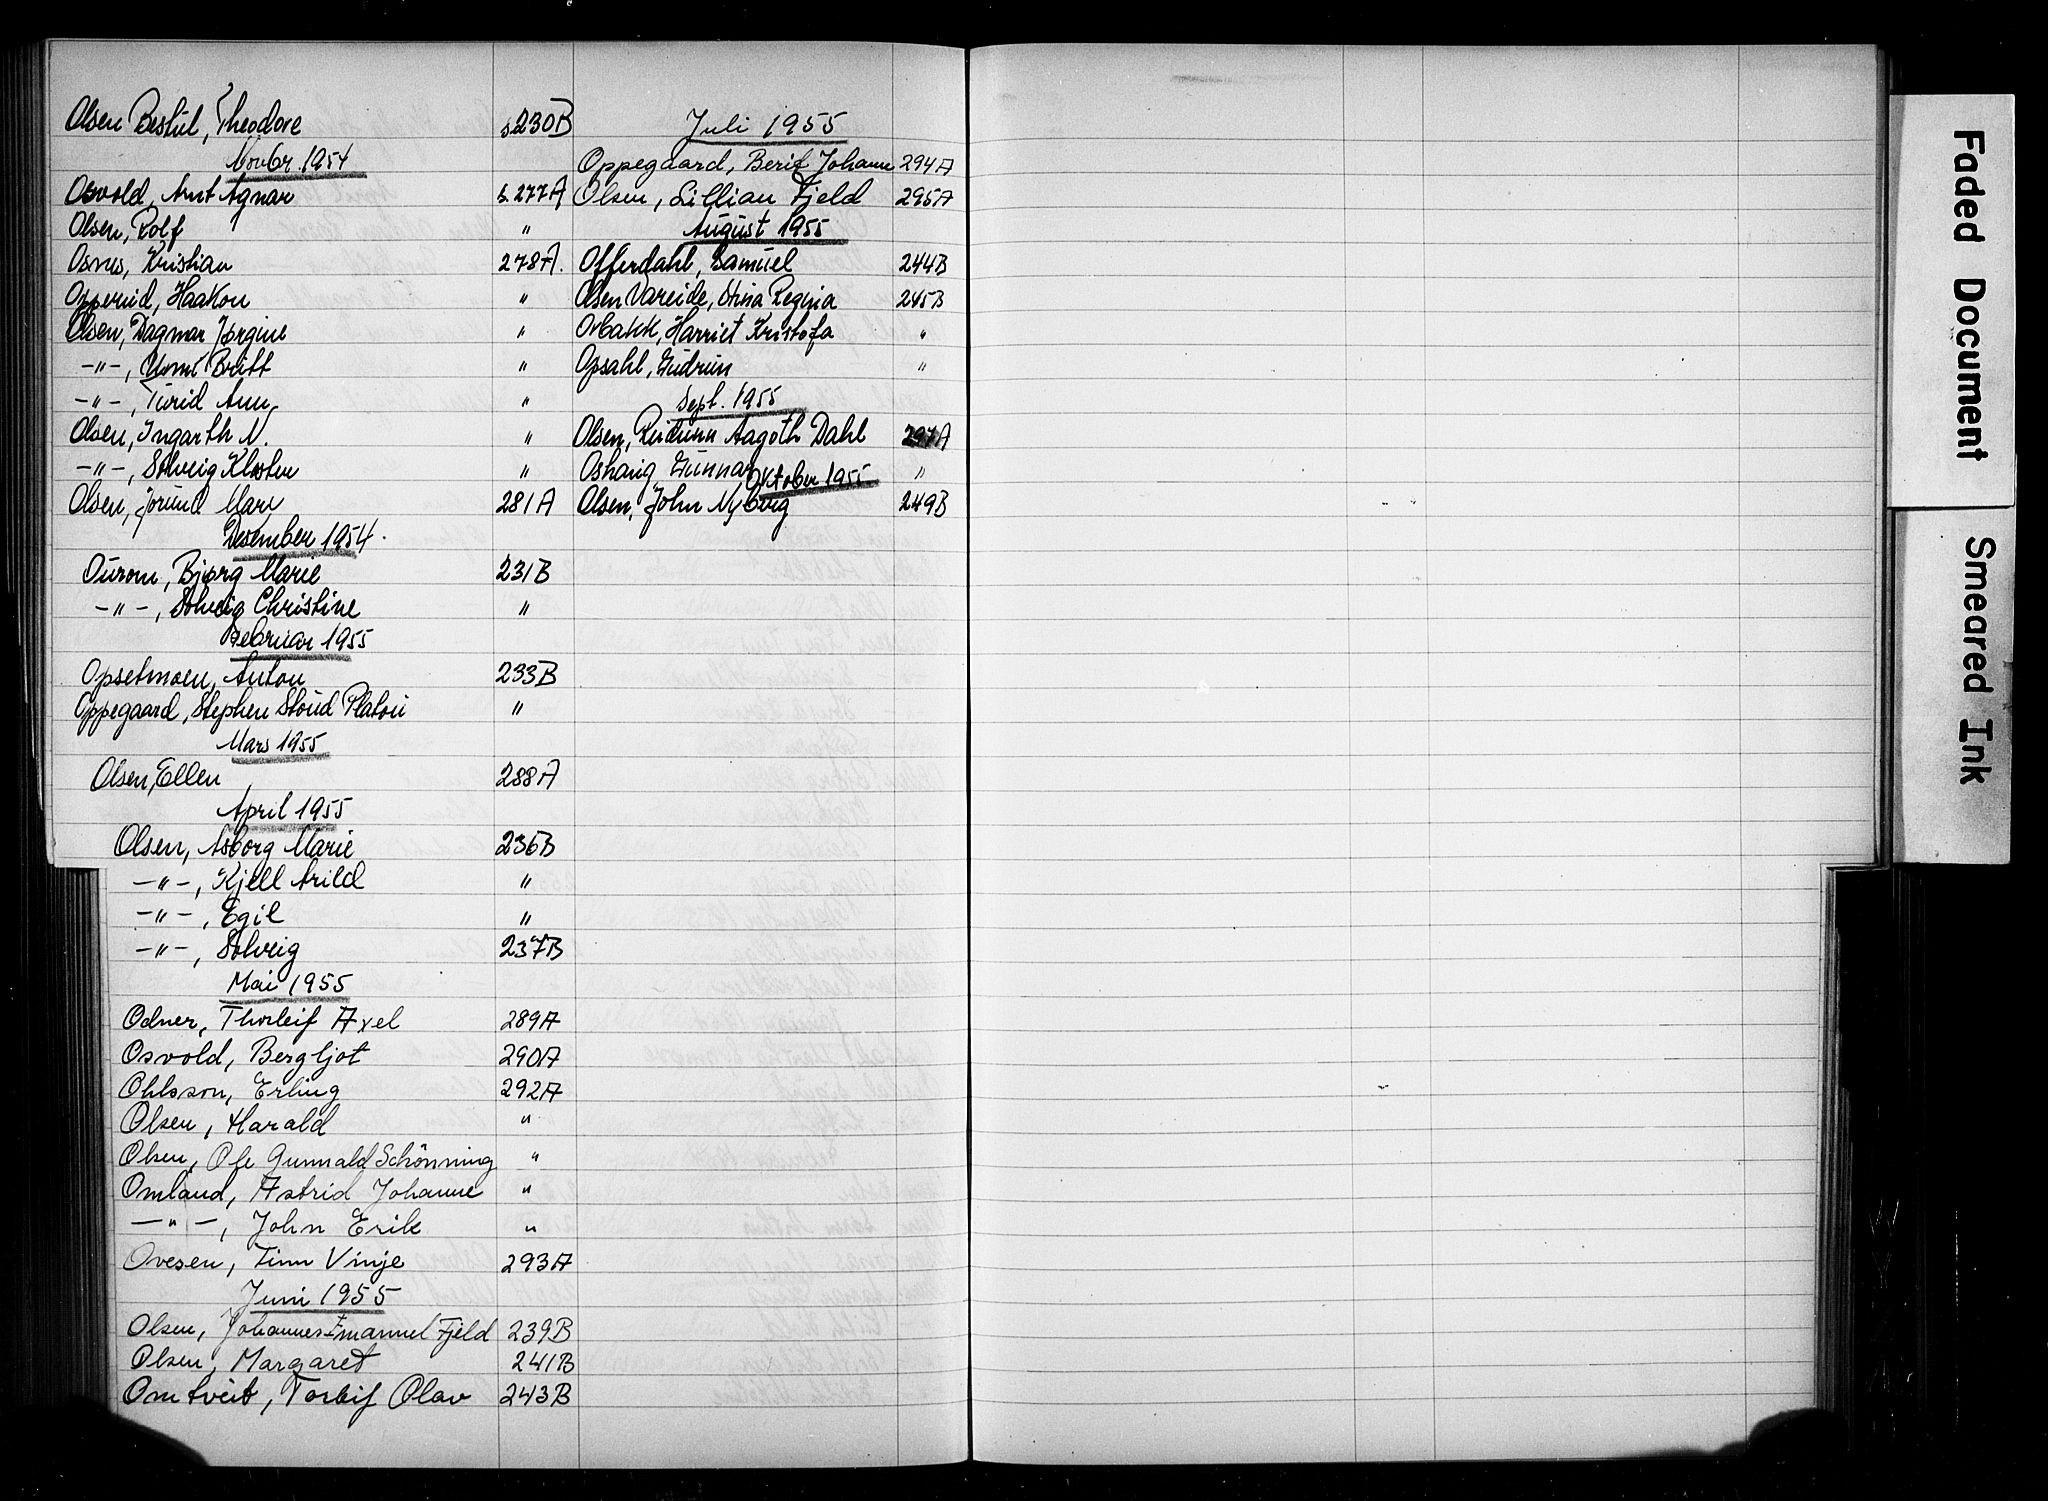 Olsen Bestul, Theodore s.230B
Novbr. 1954
Osvold, Arnt Agnar s.277A
Olsen, Rolf "
Osnes, Kristian 278A.
Opperud, Haakon "
Olsen, Dagmar Jørgine "
-"-, Unni Britt "
-"-, Turid Ann "
Olsen, Ingarth N. "
-"-, Solveig Klosten "
Olsen, Jorund Mary 281A
Desember 1954.
Ourom, Bjørg Marie 231B
-"-, Solveig Christine "
Februar 1955
Opsetmoen, Anton 233B
Oppegaard, Stephen Stoud Platou "
Mars 1955
Olsen, Ellen 288A
April 1955
Olsen, Asborg Marie 236B
-"-, Kjell Arild "
-"-, Egil "
-"-, Solveig 237B
Mai 1955
Odner, Thorleif Axel 289A
Osvold, Bergljot 290A
Ohlsson, Erling 292A
Olsen, Harald "
Olsen, Ole Gunnald Schönning "
Omland, Astrid Johanne "
-"-, John Erik "
Ovesen, Finn Vinje 293A
Juni 1955
Olsen, Johannes Emanuel Fjeld 239B
Olsen, Margaret 241B
Omtveit, Torleif Olav 243B
Juli 1955
Oppegaard, Berit Johanne 294A
Olsen, Lillian Fjeld 295A
August 1955
Offerdahl, Samuel 244B
Olsen Vareide, Stina Regina 245B
Orbakk, Harriet Kristofa "
Opsahl, Gudrun "
Sept. 1955
Olsen, Reidunn Aagoth Dahl 297A
Oshaug Gunnar "
Oktober 1955
Olsen, John Nyborg 249B
Faded Document
Smeared Ink